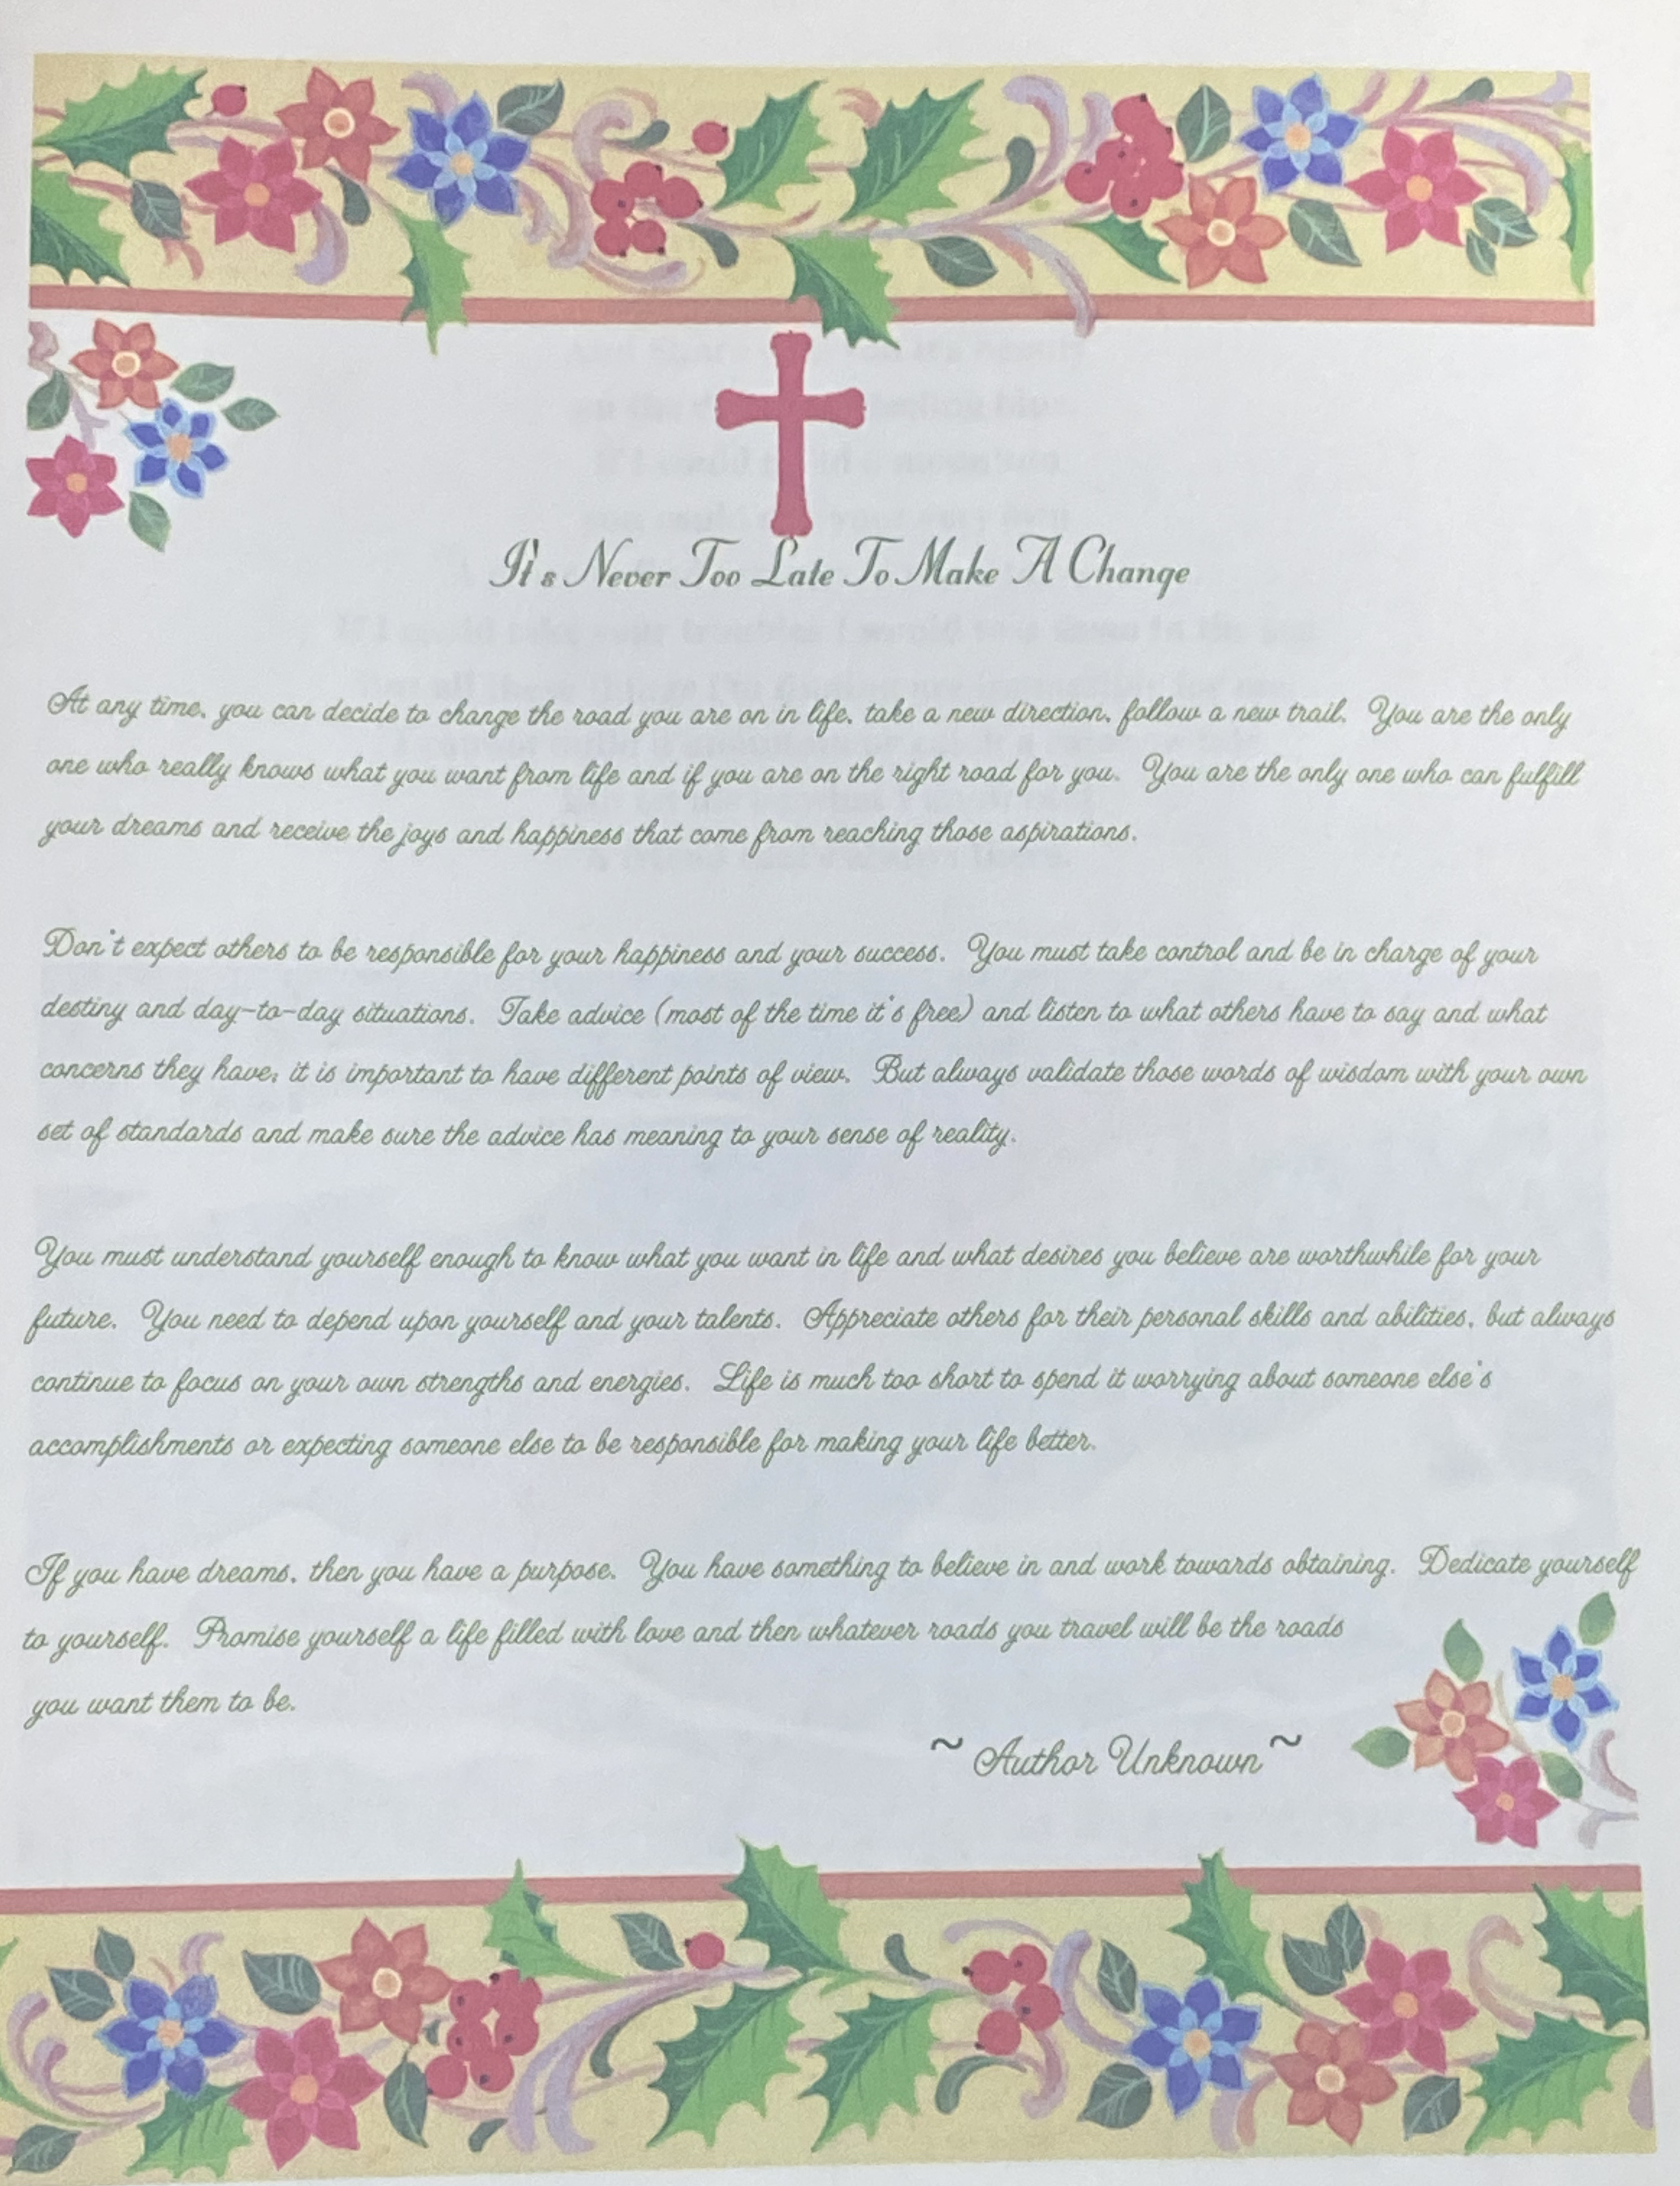 It's Never Too Late To Make A Change
At any time, you can decide to change the road you are on in life, take a new direction, follow a new trail. You are the only
one who really knows what you want from life and if you are on the right road for you. You are the only one who can fulfill
your dreams and receive the joys and happiness that come from reaching those aspirations.
Don't expect others to be responsible for your happiness and your success. You must take control and be in charge of your
destiny and day-to-day situations. Take advice (most of the time it's free) and listen to what others have to say and what
concerns they have; it is important to have different points of view. But always validate those words of wisdom with your own
set of standards and make sure the advice has meaning to your sense of reality.
You must understand yourself enough to know what you want in life and what desires you believe are worthwhile for your
future. You need to depend upon yourself and your talents. Appreciate others for their personal skills and abilities, but always
continue to focus on your own strengths and energies. Life is much too short to spend it worrying about someone else's
accomplishments or expecting someone else to be responsible for making your life better.
If you have dreams, then you have a purpose. You have something to believe in and work towards obtaining. Dedicate yourself
to yourself. Promise yourself a life filled with love and then whatever roads you travel will be the roads
you want them to be.
~ Author Unknown ~